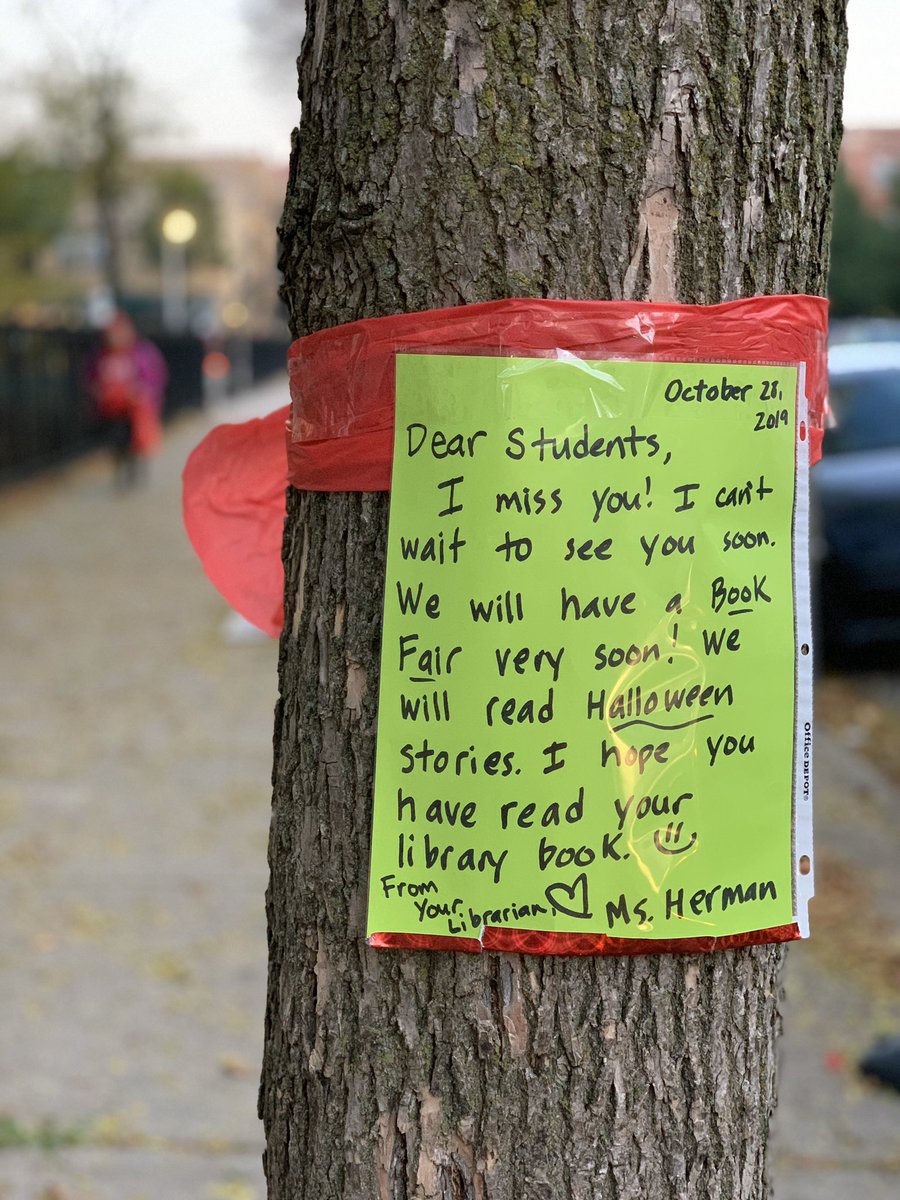 October 28,
2019
Dear Students,
I miss you! I can't
wait to see you soon.
We will have a Book
Fair very soon! We
will read Halloween
stories. I hope you
have read your
library book.
From
Your
Librarian,
Ms. Herman
Office DEPOT®